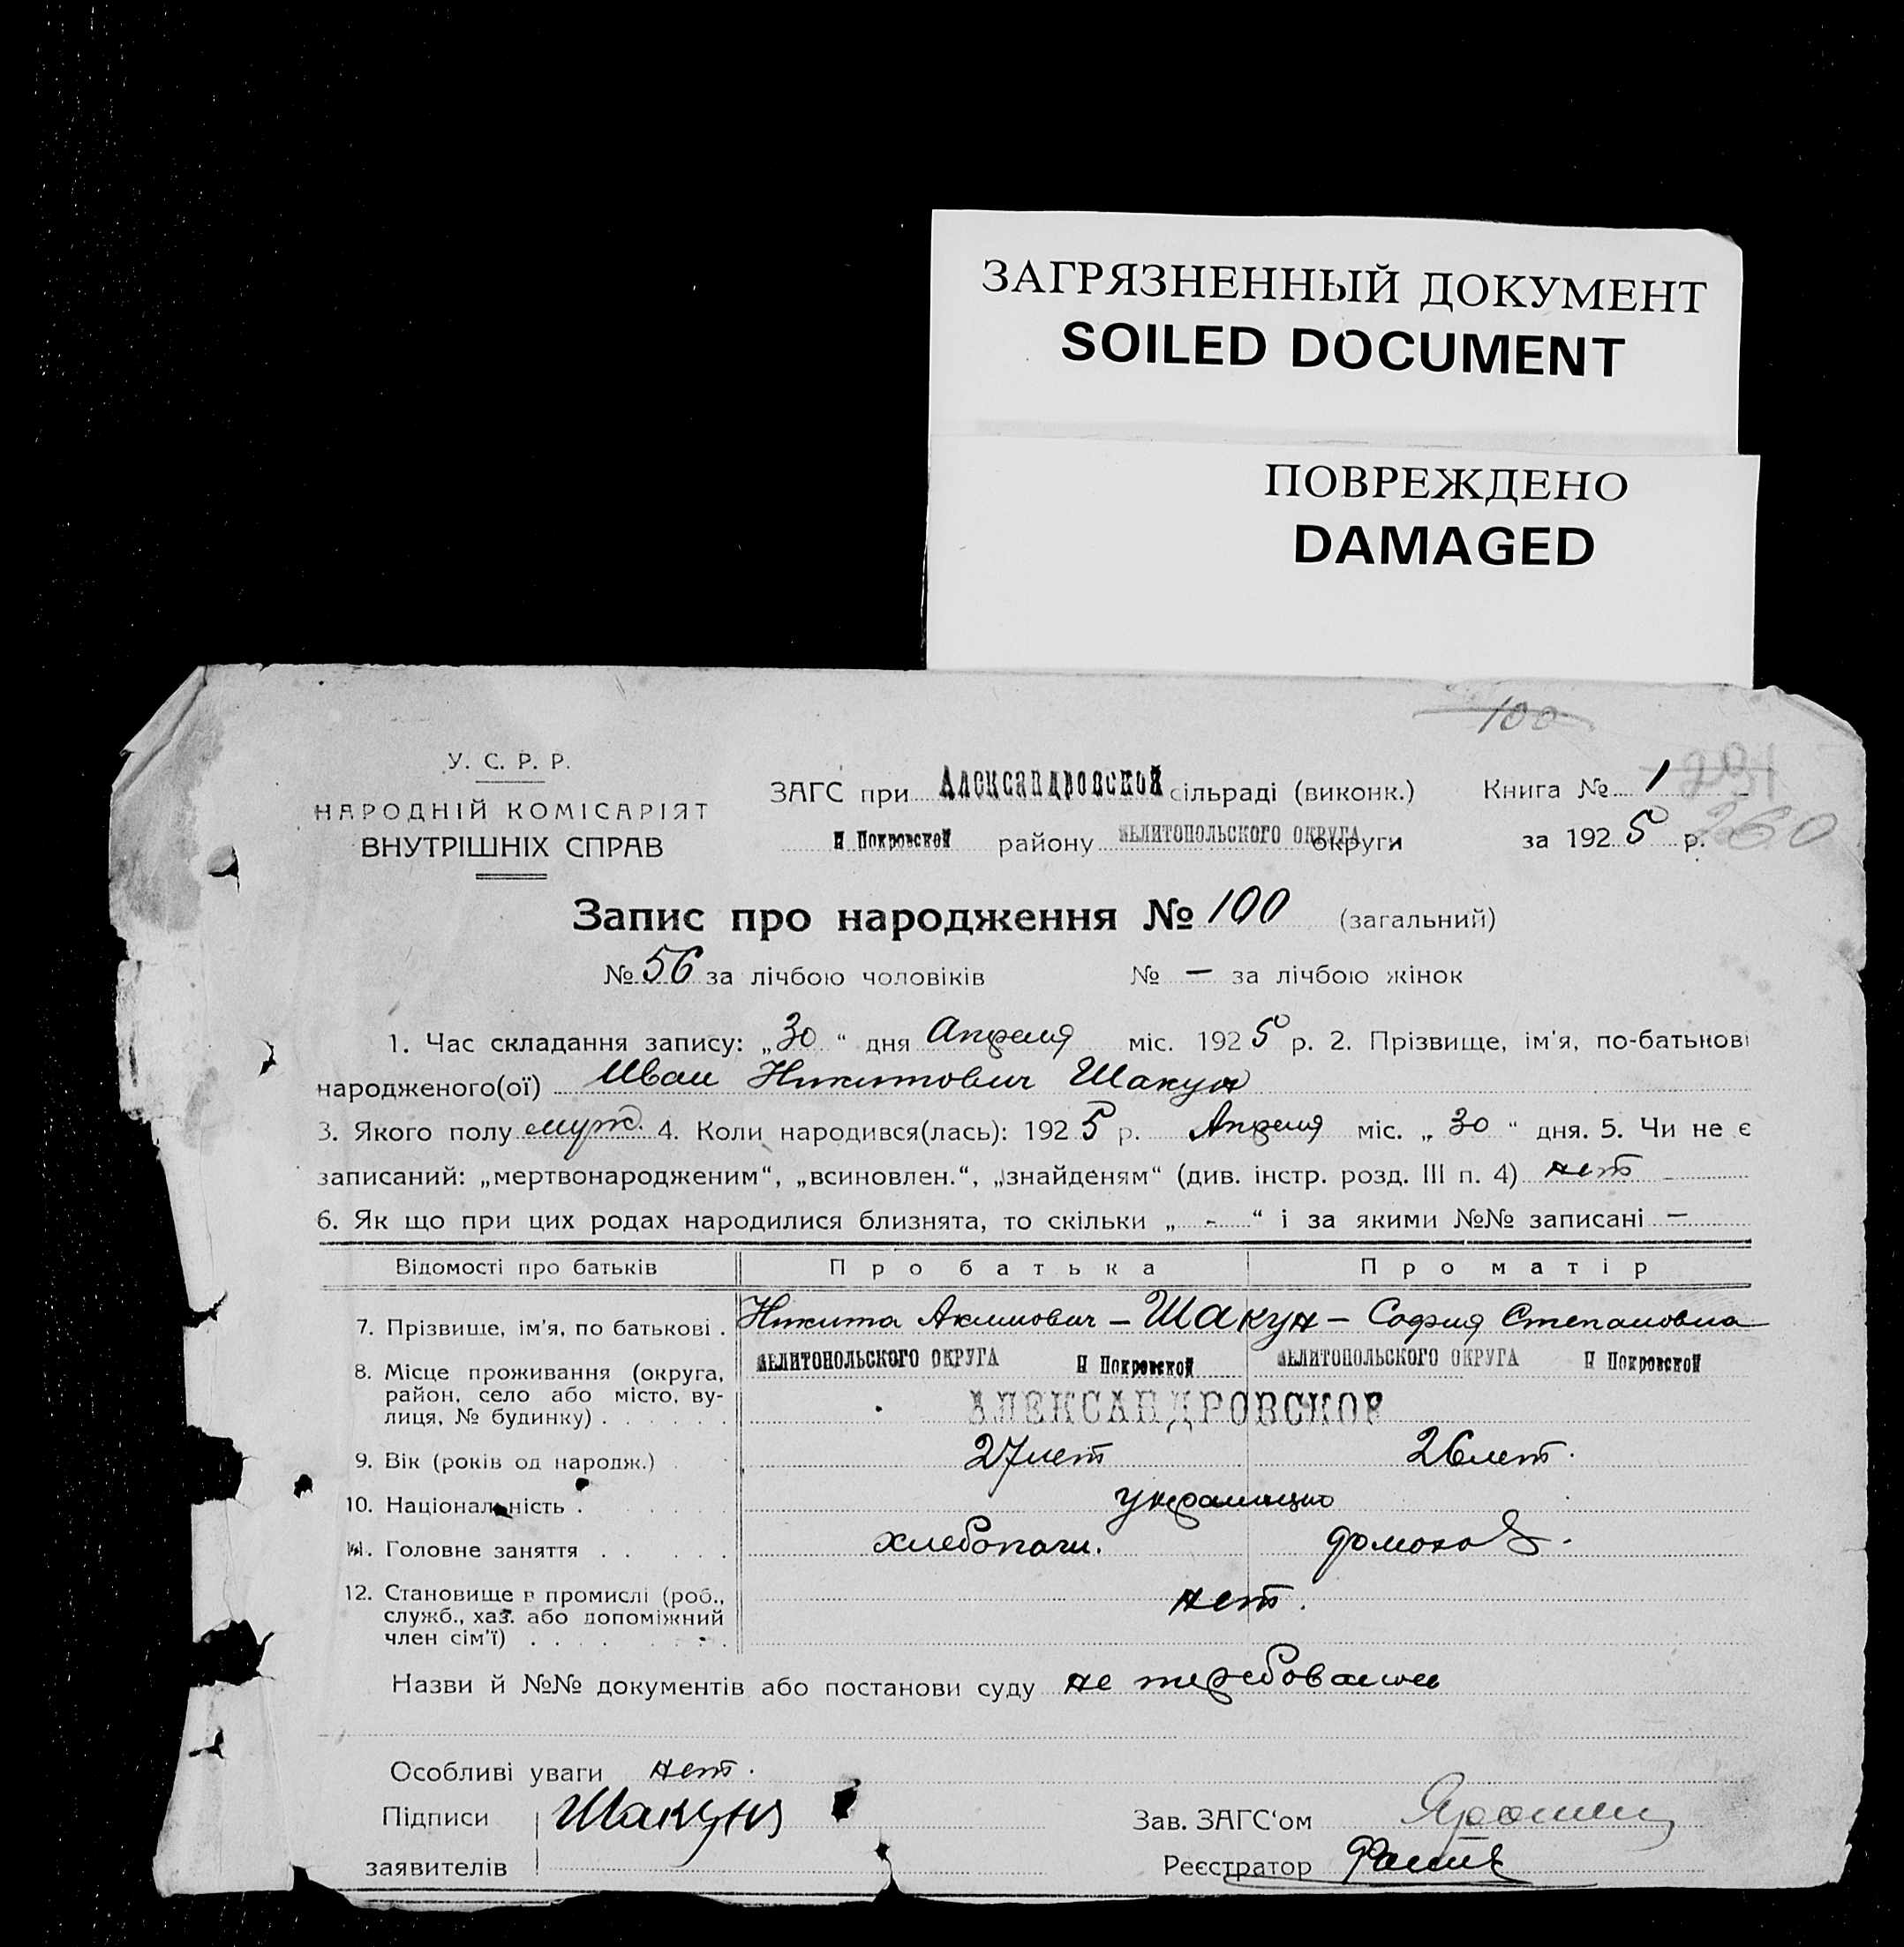 ЗАГРЯЗНЕННЫЙ ДОКУМЕНТ
SOILED DOCUMENT
ПОВРЕЖДЕНО
DAMAGED
100
291
260
У. С. Р. Р.
НАРОДНІЙ КОМІСАРІЯТ
ВНУТРІШНІХ СПРАВ
ЗАГС при Александровской сільраді (виконк.) Книга № 1
Н Покровской району МЕЛИТОПОЛЬСКОГО ОКРУГА округи за 1925 р.
Запис про народження № 100 (загальний)
№ 56 за лічбою чоловіків № — за лічбою жінок
1. Час складання запису: „30“ дня Апреля міс. 1925 р. 2. Прізвище, ім'я, по-батькові
народженого(ої) Иван Никитович Шакун
3. Якого полу муж. 4. Коли народився(лась): 1925 р. Апреля міс. „30“ дня. 5. Чи не є
записаний: „мертвонародженим“, „всиновлен.“, „знайденям“ (див. інстр. розд. III п. 4) нет
6. Як що при цих родах народилися близнята, то скільки „ - “ і за якими №№ записані —
Відомості про батьків Про батька Про матір
7. Прізвище, ім'я, по батькові . Никита Акимович — Шакун — София Степановна
8. Місце проживання (округа, район, село або місто, ву-лиця, № будинку) МЕЛИТОПОЛЬСКОГО ОКРУГА Н Покровской МЕЛИТОПОЛЬСКОГО ОКРУГА Н Покровской
АЛЕКСАНДРОВСКОЕ
9. Вік (років од народж.) 27 лет 26 лет.
10. Національність . украинцы
11. Головне заняття . . хлебопаш. домохоз.
12. Становище в промислі (роб., служб., хаз. або допоміжний член сім'ї) нет.
Назви й №№ документів або постанови суду не требовалось
Особливі уваги нет.
Підписи Шакун Зав. ЗАГС'ом
заявителів Реєстратор